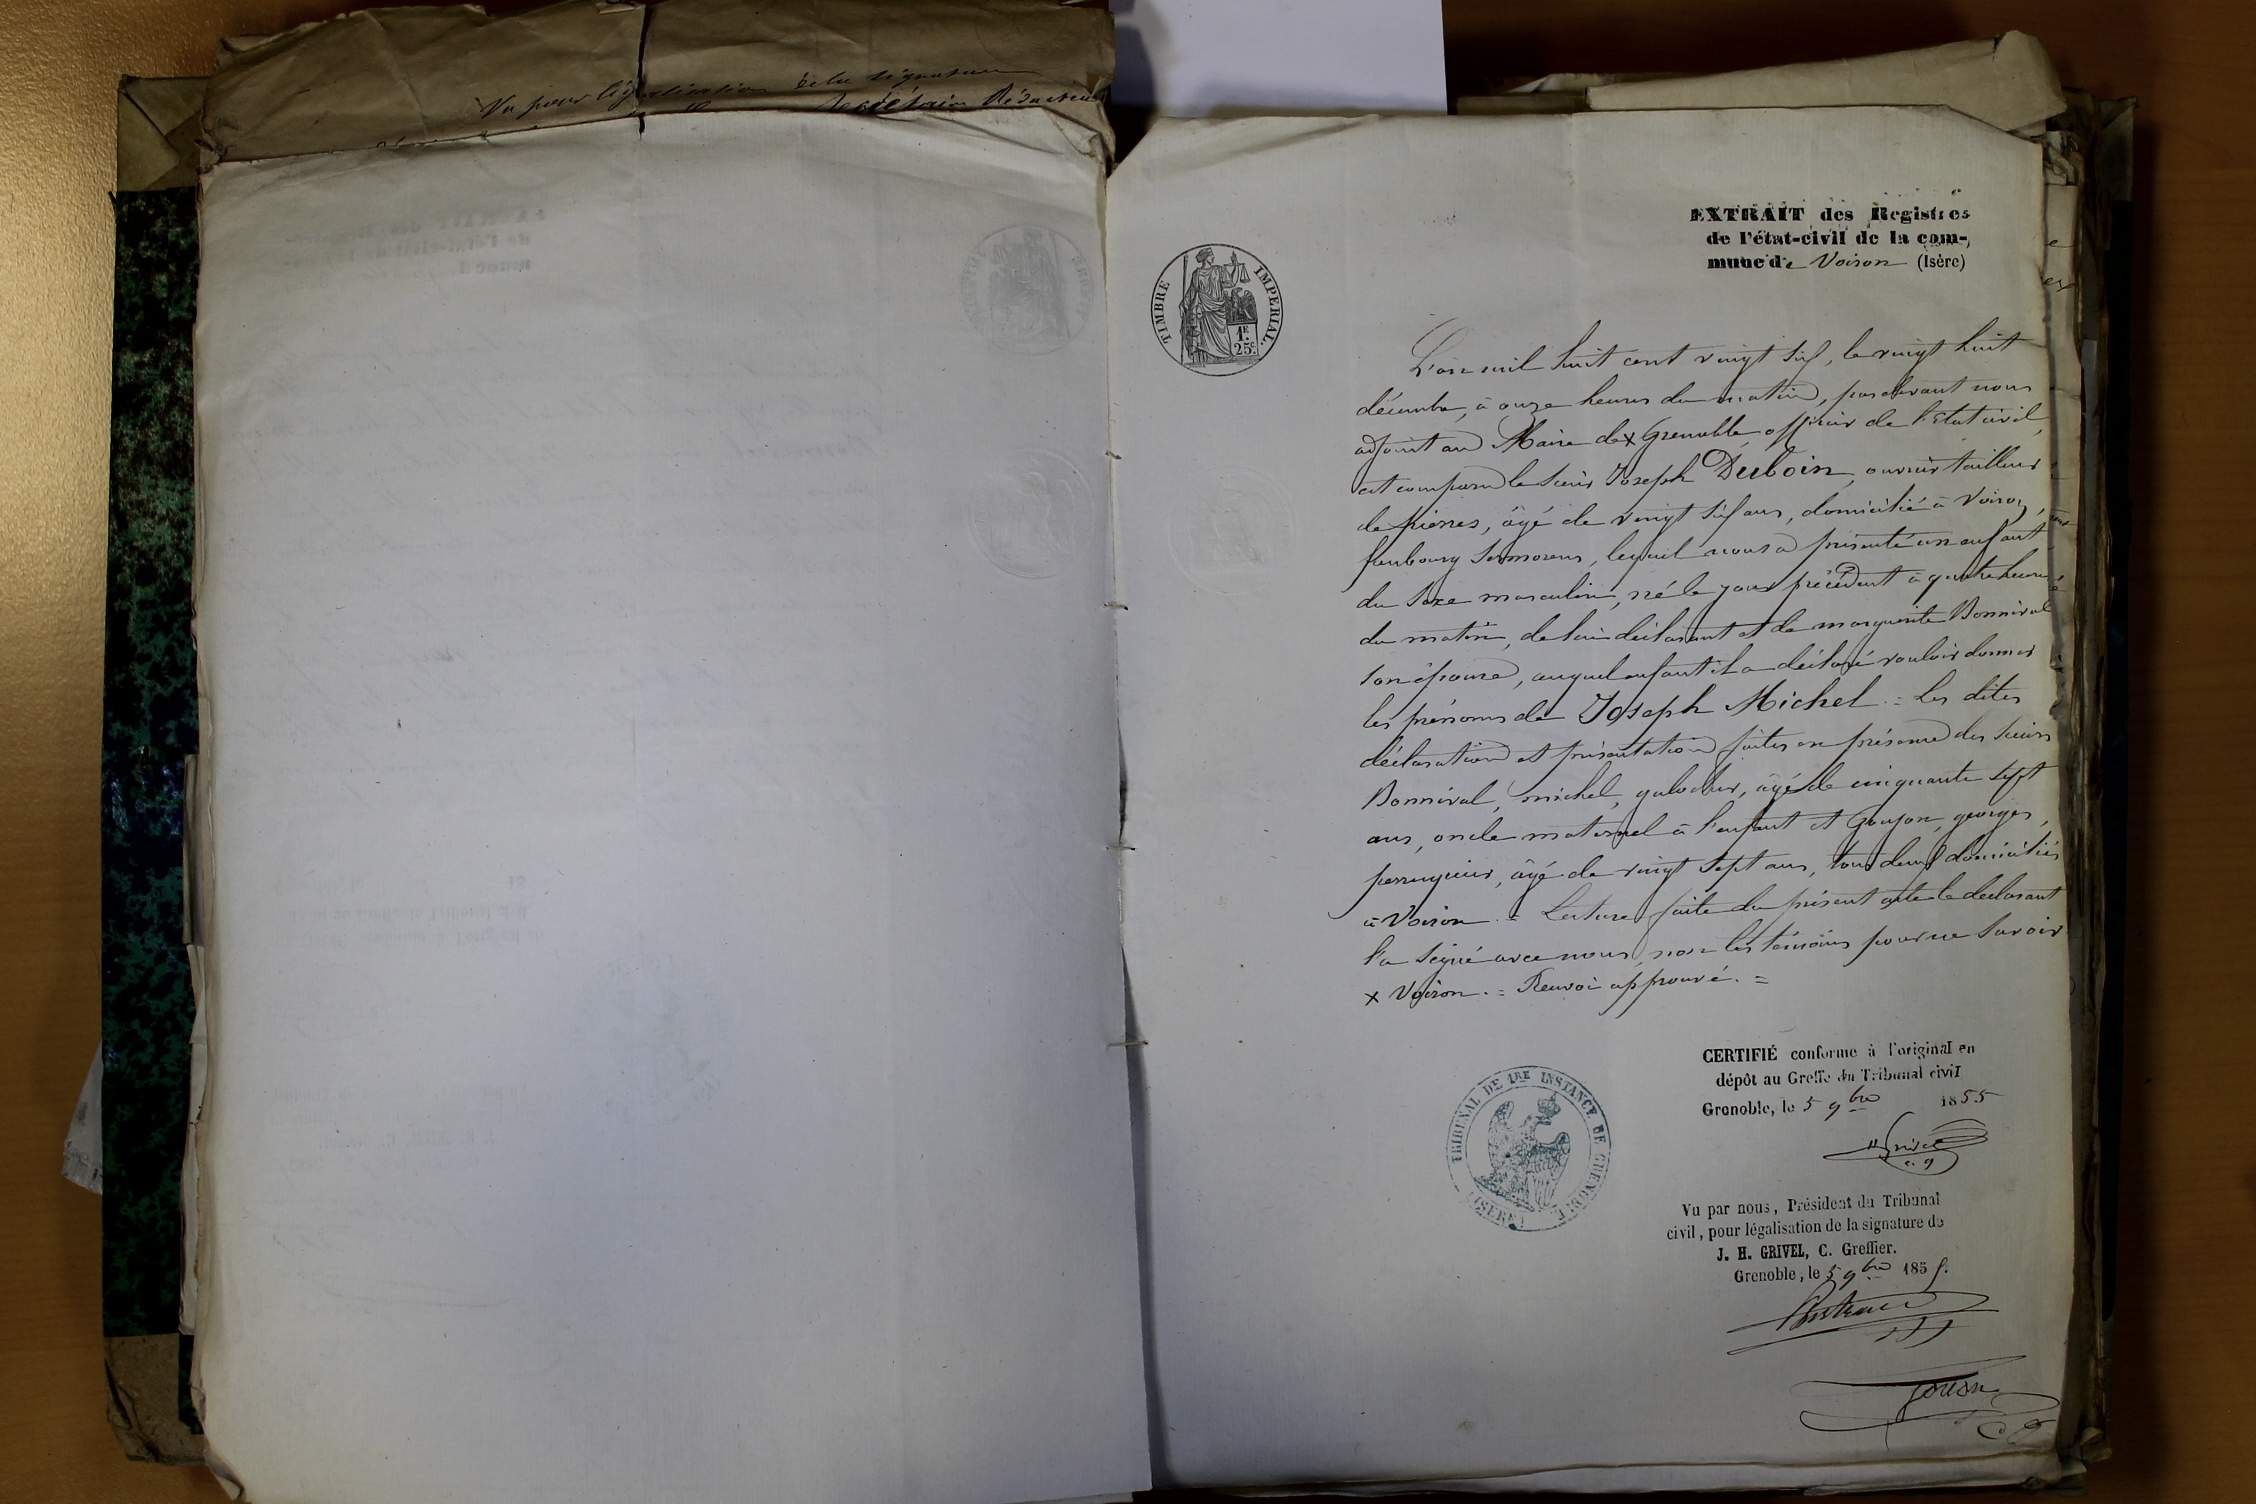 Vu pour légalisation de la signature
Secrétaire Rédacteur
EXTRAIT des Registres
de l'état-civil de la com-
mune de Voiron (Isère)
TIMBRE IMPERIAL.
1F.
25c.
L'an mil huit cent vingt six, le vingt huit
décembre, à onze heures du matin, pardevant nous
adjoint au Maire de x Grenoble officier de l'Etat civil,
est comparu le sieur Joseph Duboin, ouvrier tailleur
de pierres, âgé de vingt six ans, domicilié à Voiron,
faubourg Sermorens, lequel nous a présenté un enfant
du sexe masculin, né le jour précédent à quatre heures
du matin, de lui déclarant et de marguerite Bonnival
son épouse, auquel enfant il a déclaré vouloir donner
les prénoms de Joseph Michel = Les dites
déclaration et présentation faites en présence des sieurs
Bonnival, michel, galocher, âgé de cinquante sept
ans, oncle maternel à l'enfant et Goujon, georges,
perruquier, âgé de vingt sept ans, tous deux domiciliés
à Voiron. = Lecture faite du présent acte le déclarant
l'a signé avec nous, non les témoins pour ne savoir
x Voiron. = Renvoi approuvé. =
CERTIFIÉ conforme à l'original en
dépôt au Greffe du Tribunal civil
Grenoble, le 5 9bre 1855
Grivel
c. g
TRIBUNAL DE 1RE INSTANCE DE GRENOBLE
(ISERE)
Vu par nous, Président du Tribunal
civil, pour légalisation de la signature de
J. H. GRIVEL, C. Greffier.
Grenoble, le 5 9bre 1855.